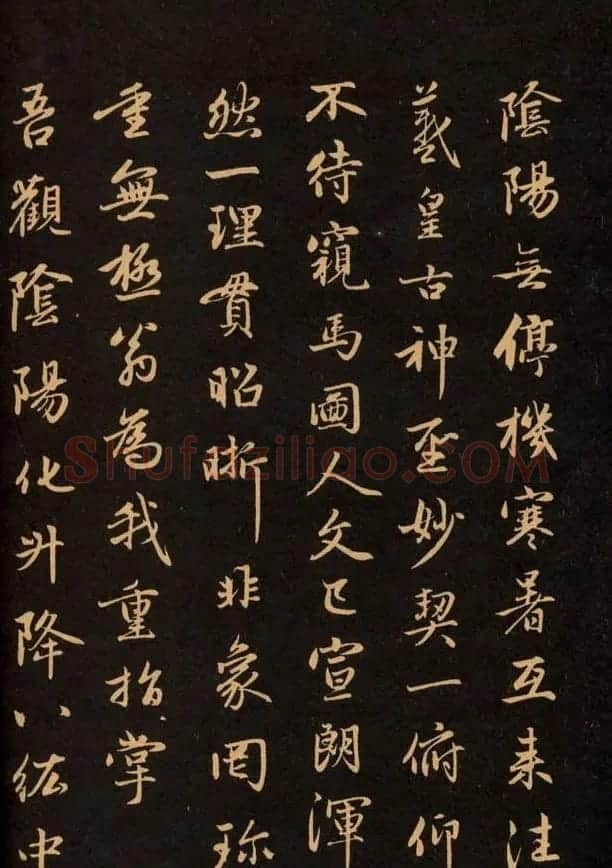 陰陽無停機寒暑互来往
羲皇古神聖妙契一俯仰
不待窺馬圖人文已宣朗渾
然一理貫昭晰非象罔珎
重無極翁為我重指掌
吾觀陰陽化升降八紘中
Shufaziliao.COM